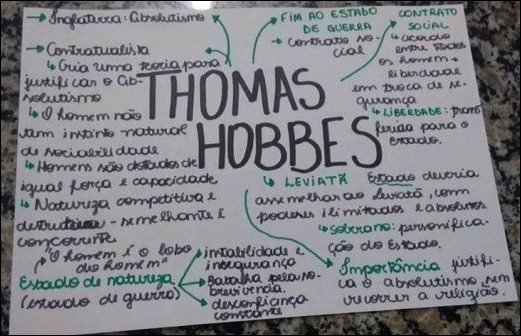 Inglaterra: Absolutismo
Contratualista
Cria uma teoria para
justificar o Ab-
solutismo
O homem não
tem instinto natural
de sociabilidade
Homens são dotados de
igual força e capacidade
Natureza competitiva e
destrutiva - semelhante é
concorrente
"O homem é o lobo
do homem"
Estado de natureza
(estado de guerra)
instabilidade e
insegurança
Batalha pela so-
brevivência
desconfiança
constante
THOMAS
HOBBES
FIM AO ESTADO
DE GUERRA
contrato so-
cial
CONTRATO
SOCIAL
acordo
entre todos
os homem
liberdade
em troca de se-
gurança
LIBERDADE: trans
ferida para o
Estado.
LEVIATÃ Estado deveria
assemelhar ao Leviatã, com
poderes ilimitados e absolutos
Soberano: personifica-
ção do Estado.
Importância justifi-
ca o absolutismo sem
recorrer a religião.